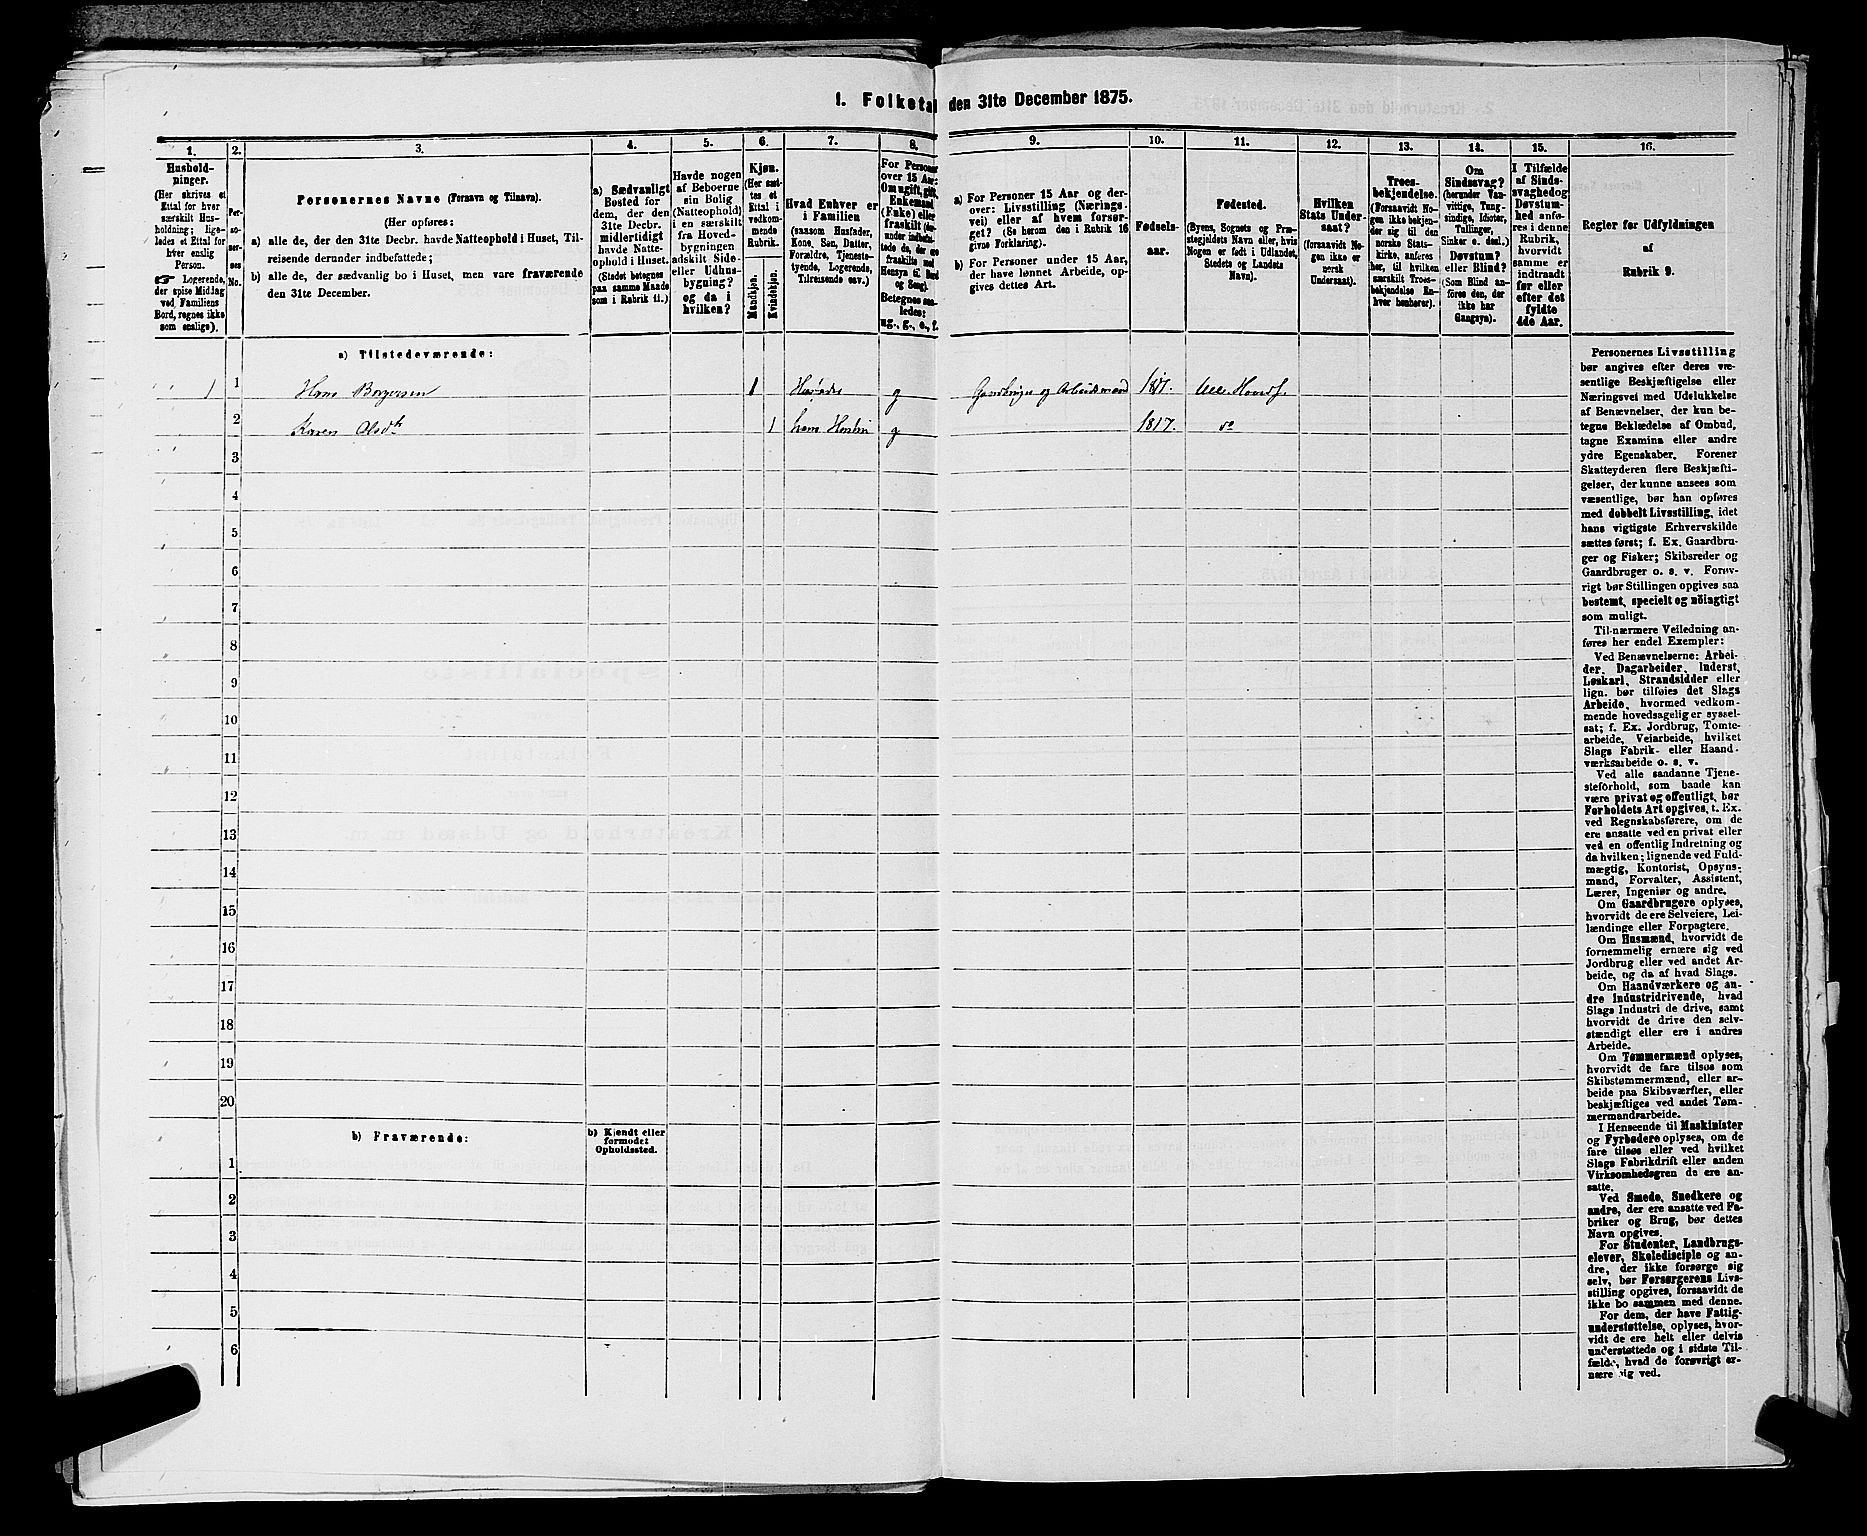 1. Folketal den 31te December 1875.
1.
2.
3.
4.
5.
6.
7.
8.
9.
10.
11.
12.
13.
14.
15.
16.
Hushold-
ninger.
(Her skrives et
Ettal for hver
særskilt Hus-
holdning; lige-
ledes et Ettal for
hver enslig
Person.
☞ Logerende,
der spise Middag
ved Familiens
Bord, regnes ikke
som enslige).
Per-
so-
ner-
nes
No.
Personernes Navne (Fornavn og Tilnavn).
(Her opføres:
a) alle de, der den 31te Decbr. havde Natteophold i Huset, Til-
reisende derunder indbefattede;
b) alle de, der sædvanlig bo i Huset, men vare fraværende
den 31te December.
a) Sædvanligt
Bosted for
dem, der den
31te Decbr.
midlertidigt
havde Natte-
ophold i Huset.
(Stedet betegnes
paa samme Maade
som i Rubrik 11.)
Havde nogen
af Beboerne
sin Bolig
(Natteophold)
i en særskilt
fra Hoved-
bygningen
adskilt Side-
eller Udhus-
bygning?
og da i
hvilken?
Kjøn.
(Her sæt-
tes et
Ettal i
vedkom-
mende
Rubrik.
Mandkjøn.
Kvindekjøn.
Hvad Enhver er
i Familien
(saasom Husfader,
Kone, Søn, Datter,
Forældre, Tjeneste-
tyende, Logerende,
Tilreisende osv.)
For Personer
over 15 Aar:
Om ugift, gift,
Enkemand
(Enke) eller
fraskilt
Betegnes saa-
ledes:
ug., g., e., f.
a) For Personer 15 Aar og der-
over: Livsstilling (Nærings-
vei) eller af hvem forsør-
get? (Se herom den i Rubrik 16
givne Forklaring).
b) For Personer under 15 Aar,
der have lønnet Arbeide, op-
gives dettes Art.
Fødsels-
aar.
Fødested.
(Byens, Sognets og Præ-
stegjeldets Navn eller, hvis
Nogen er født i Udlandet,
Stedets og Landets
Navn).
Hvilken
Stats Under-
saat?
(forsaavidt No-
gen ikke er
norsk
Undersaat).
Troes-
bekjendelse.
(Forsaavidt No-
gen ikke bekjen-
der sig til den
norske Stats-
kirke, anføres
her, til hvilken
særskilt Troes-
bekjendelse En-
hver henhører).
Om
Sindssvag?
(herunder Van-
vittige, Tung-
sindige, Idioter,
Tullinger,
Sinker o. desl.)
Døvstum?
eller Blind?
(Som Blind an-
føres den, der
ikke har
Gangsyn).
I Tilfælde
af Sinds-
svaghed og
Døvstum-
hed anfø-
res i denne
Rubrik,
hvorvidt
samme er
indtraadt
før eller
efter det
fyldte
4de Aar.
Regler for Udfyldningen
af
Rubrik 9.
a) Tilstedeværende:
1 1 Hans Borgersen 1 g Gaardbruger og Arbeidsmand
2 Karen Olsdtr 1 hans Hustru g 1817. do
3
4
5
6
7
8
9
10
11
12
13
14
15
16
17
18
19
20
b) Fraværende:
b) Kjendt eller
formodet
Opholdssted.
1
2
3
4
5
6
Personernes Livsstilling
bør angives efter deres væ-
sentlige Beskjæftigelse eller
Næringsvei med Udelukkelse
af Benævnelser, der kun be-
tegne Beklædelse af Ombud,
tagne Examina eller andre
ydre Egenskaber. Forener
Skatteyderen flere Beskjæfti-
gelser, der kunne ansees som
væsentlige, bør han opføres
med dobbelt Livsstilling, idet
hans vigtigste Erhvervskilde
sættes først; f. Ex. Gaardbru-
ger og Fisker; Skibsreder og
Gaardbruger o. s. v. Forøv-
rigt bør Stillingen opgives saa
bestemt, specielt og nöiagtigt
som muligt.
Til nærmere Veiledning an-
føres her endel Exempler:
Ved Benævnelserne: Arbei-
der, Dagarbeider, Inderst,
Løskarl, Strandsidder eller
lign. bør tilføies det Slags
Arbeide, hvormed vedkom-
mende hovedsagelig er syssel-
sat; f. Ex. Jordbrug, Tomte-
arbeide, Veiarbeide, hvilket
Slags Fabrik- eller Haand-
værksarbeide o. s. v.
Ved alle saadanne Tjene-
steforhold, som baade kan
være privat og offentligt, bør
Forholdets Art opgives, t. Ex.
ved Regnskabsførere, om de
ere ansatte ved en privat eller
ved en offentlig Indretning og
da hvilken; lignende ved Fuld-
mægtig, Kontorist, Opsyns-
mand, Forvalter, Assistent,
Lærer, Ingeniør og andre.
Om Gaardbrugere oplyses,
hvorvidt de ere Selveiere, Lei-
lændinge eller Forpagtere.
Om Husmænd, hvorvidt de
fornemmelig ernære sig ved
Jordbrug eller ved andet Ar-
beide, og da af hvad Slags.
Om Haandværkere og an-
dre industridrivende, hvad
Slags Industri de drive, samt
hvorvidt de drive den selv-
stændigt eller ere i andres
Arbeide.
Om Tømmermænd oplyses,
hvorvidt de fare tilsøs som
Skibstømmermænd, eller ar-
beide paa Skibsværfter, eller
beskjæftiges ved andet Tøm-
mermandsarbeide.
I Henseende til Maskinister
og Fyrbødere oplyses, om de
fare tilsøs eller ved hvilket
Slags Fabrikdrift eller anden
Virksomhedsgren de ere an-
satte.
Ved Smede, Snedkere og
andre, der ere ansatte ved Fa-
briker og Brug, bør dettes
Navn opgives.
For Studenter, Landbrugs-
elever, Skoledisciple og an-
dre, der ikke forsørge sig
selv, bør Forsørgerens Livs-
stilling opgives, forsaavidt de
ikke bo sammen med denne.
For dem, der have Fattig-
understøttelse, oplyses, hvor-
vidt de ere helt eller delvis
understøttede og i sidste Til-
fælde, hvad de forøvrigt er-
nære sig ved.